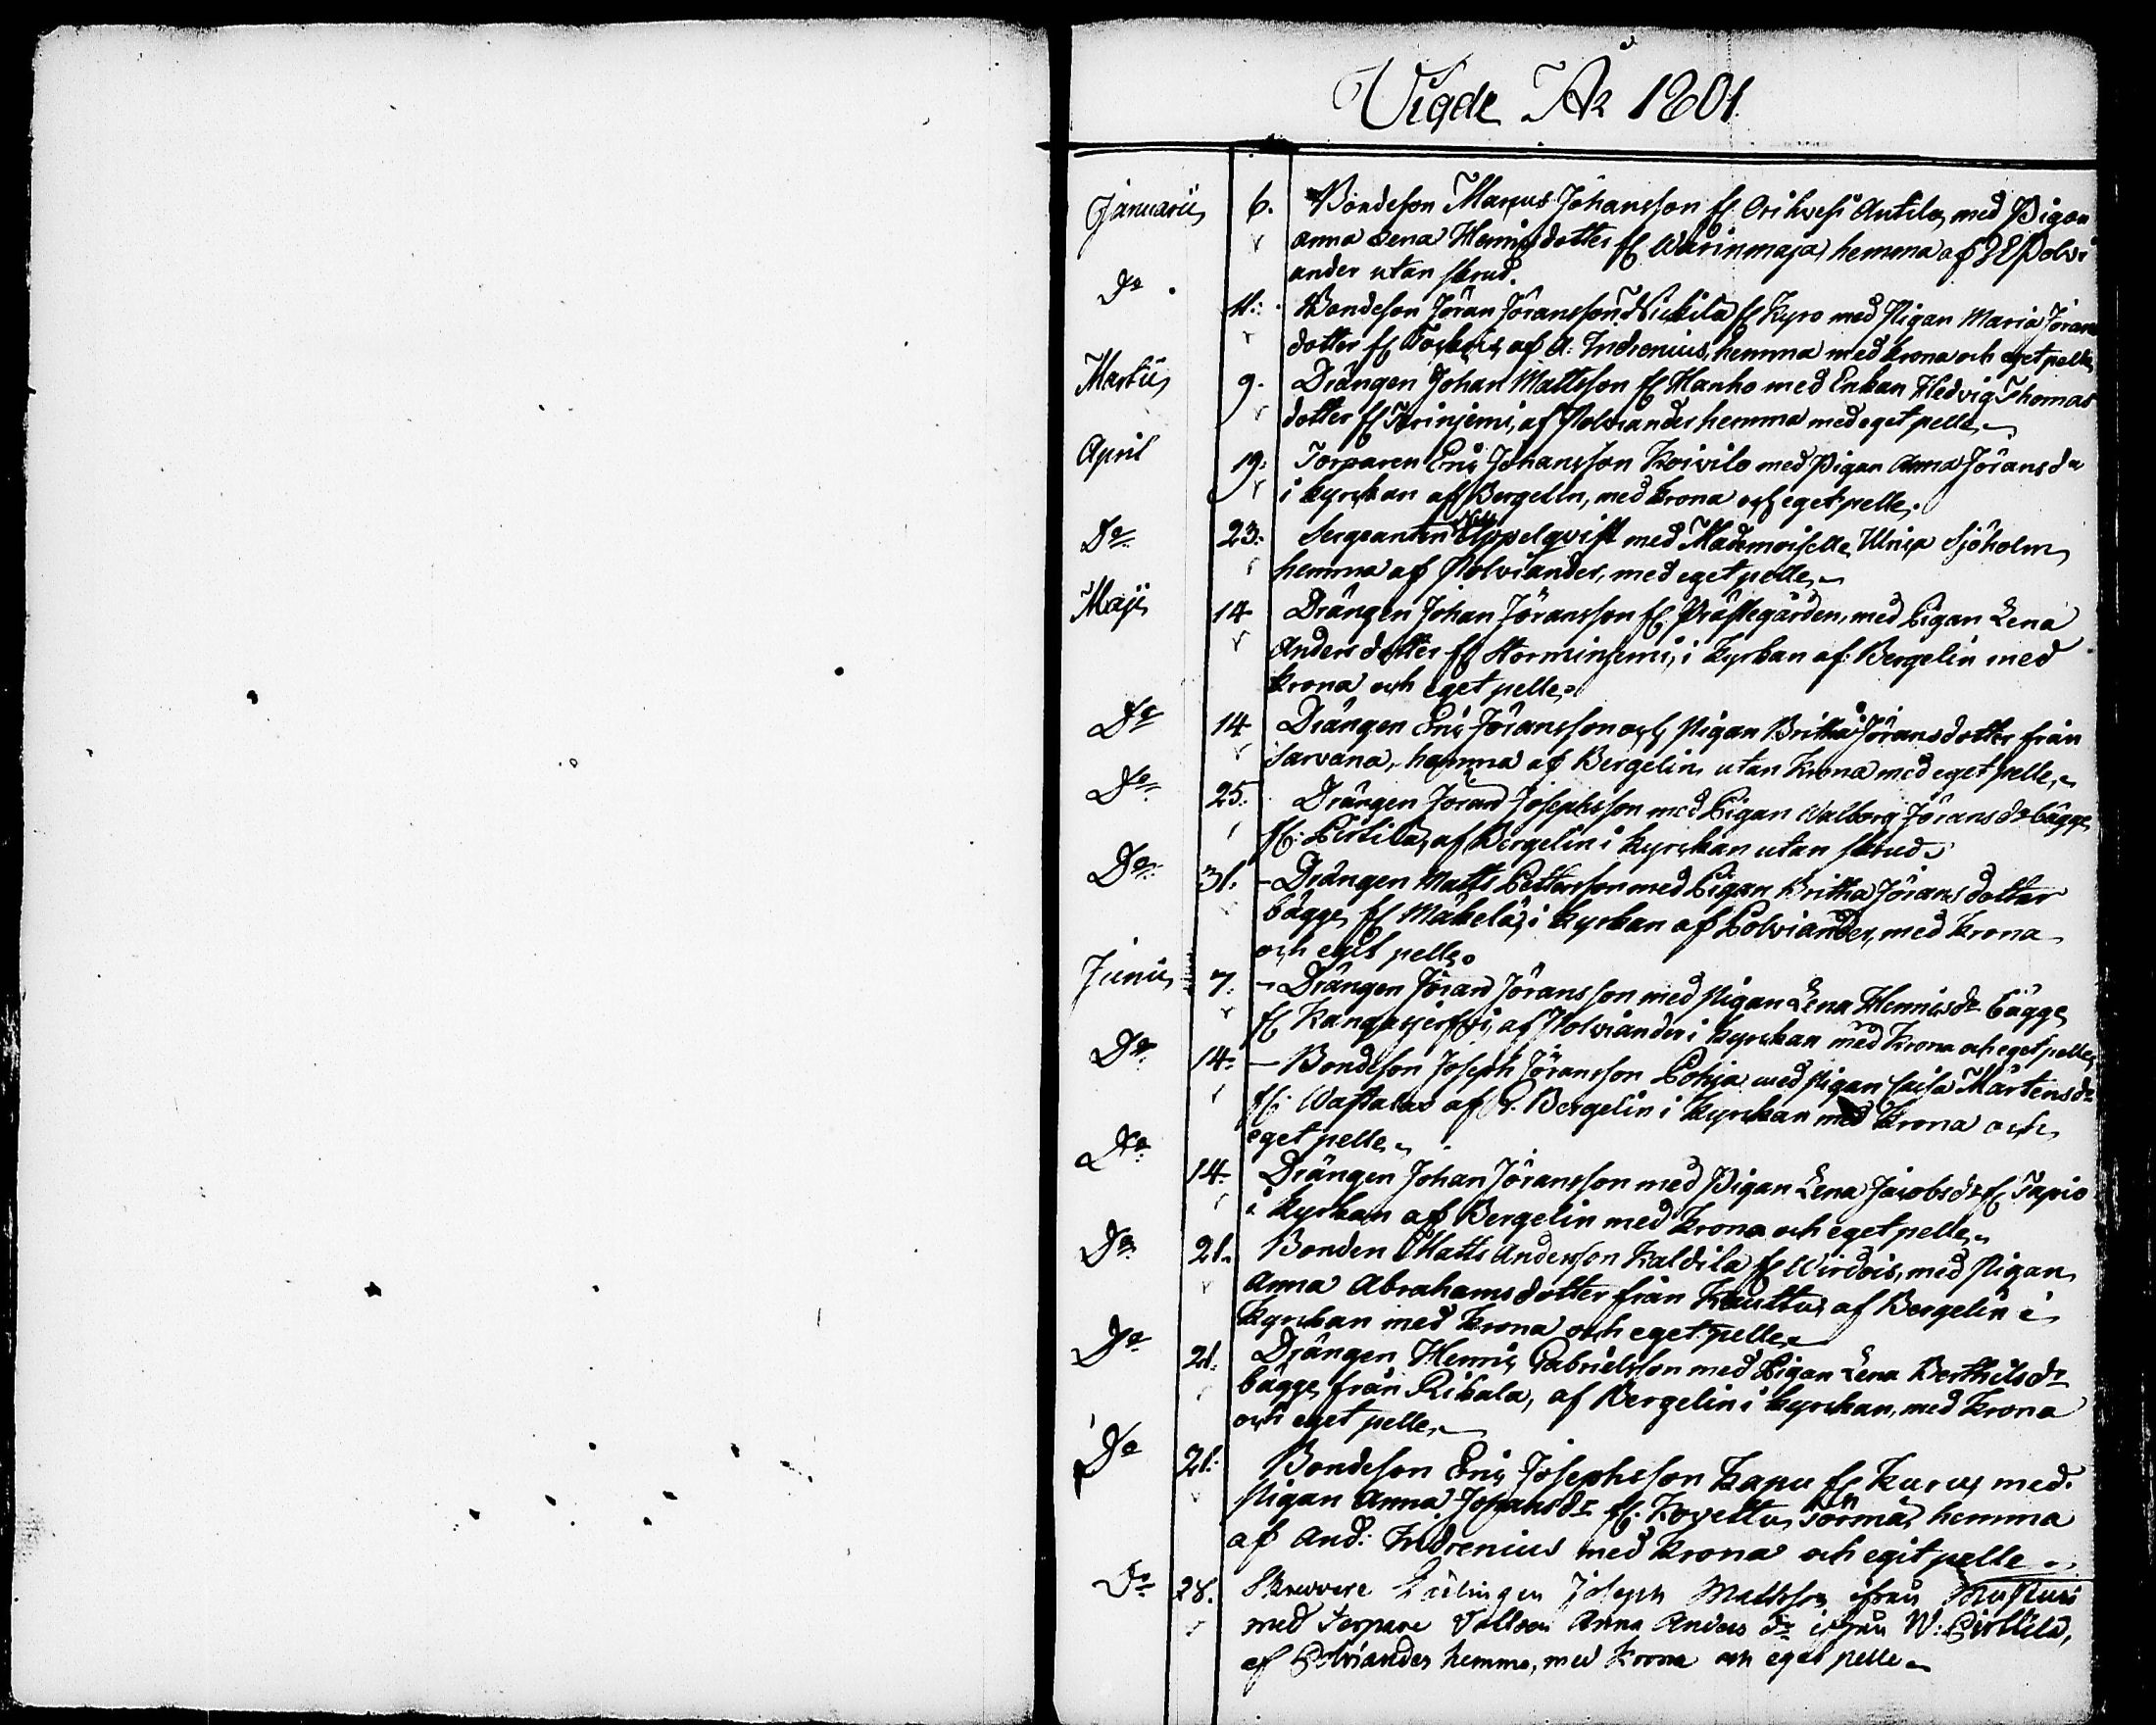 Vigde År 1801.
Januarii 6. Bondeson Marcus Johansson fr Orihvesi Antila, med Pigan
Anna Lena Henricsdotter fr Warinmaja hemma af J E Polvi
ander utan skrud.
Do 11. Bondeson Jöran Jöransson fr Kyro med Pigan Maria Jörans
dotter fr af A: Indrenius, hemma med krona och eget pelle
Martii 9. Drängen Johan Mattsson fr Hanho med Enkan Hedvig Thomas
dotter fr af Polviander hemma med eget pelle
April 19. Torparen Eric Johansson Koivilo med Pigan Anna Jöransdr
i kyrckan af Bergelin, med krona och eget pelle.
Do 23. Sergeanten Appelqvist med Mademoiselle Ulrica Sjöholm
hemma af Polviander, med eget pelle
Maji 14 Drängen Johan Jöransson fr Prästegården, med Pigan Lena
Andersdotter fr i Kyrkan af Bergelin med
krona och eget pelle
Do 14 Drängen Eric Jöransson och Pigan Britha Jöransdotter från
Sarvana, hemma af Bergelin utan Krona med eget pelle
Do 25. Drängen Jöran Josephsson med Pigan Walborg Jöransdr bägge
fr: Pertila, af Bergelin i kyrckan utan skrud
Do 31. Drängen Matts Pettersson med Pigan Britha Jöransdotter
bägge fr Mäkelä, i kyrkan af Polviander, med krona
och eget pelle.
Junii 7. Drängen Jöran Jöransson med Pigan Lena Henricsdr bägge
fr Kangasjerfvi af Polviander i kyrckan med Krona och eget pelle
Do 14. Bondeson Joseph Jöransson Pohja med Pigan Caisa Mårtensdr
fr: af P. Bergelin i kyrckan med Krona och
eget pelle
Do 14. Drängen Johan Jöransson med Pigan Lena Jacobsdr fr Tapio
i kyrkan af Bergelin med Krona och eget pelle
Do 21. Bonden Matts Andersson Kaldila fr Wirdois, med Pigan
Anna Abrahamsdotter från Kauttu, af Bergelin i
Kyrckan med krona och eget pelle
Do 21. Drängen Henric Gabrielsson med Pigan Lena Berthilsdr
bägge från Rikala, af Bergelin i kyrckan, med Krona
och eget pelle
Do 21. Bondeson Eric Josephsson Kapu fr Kurus med
Pigan Anna Johansdr fr: Kovettu Törmä, hemma
af And: Indrenius med krona och egit pelle
Do 28. Skreddare Lärlingen Joseph Mattsson ifrån
med Torpare Dottren Anna Anders dr ifrån W: Pirttilä,
af Polviander hemma, med krona och eget pelle